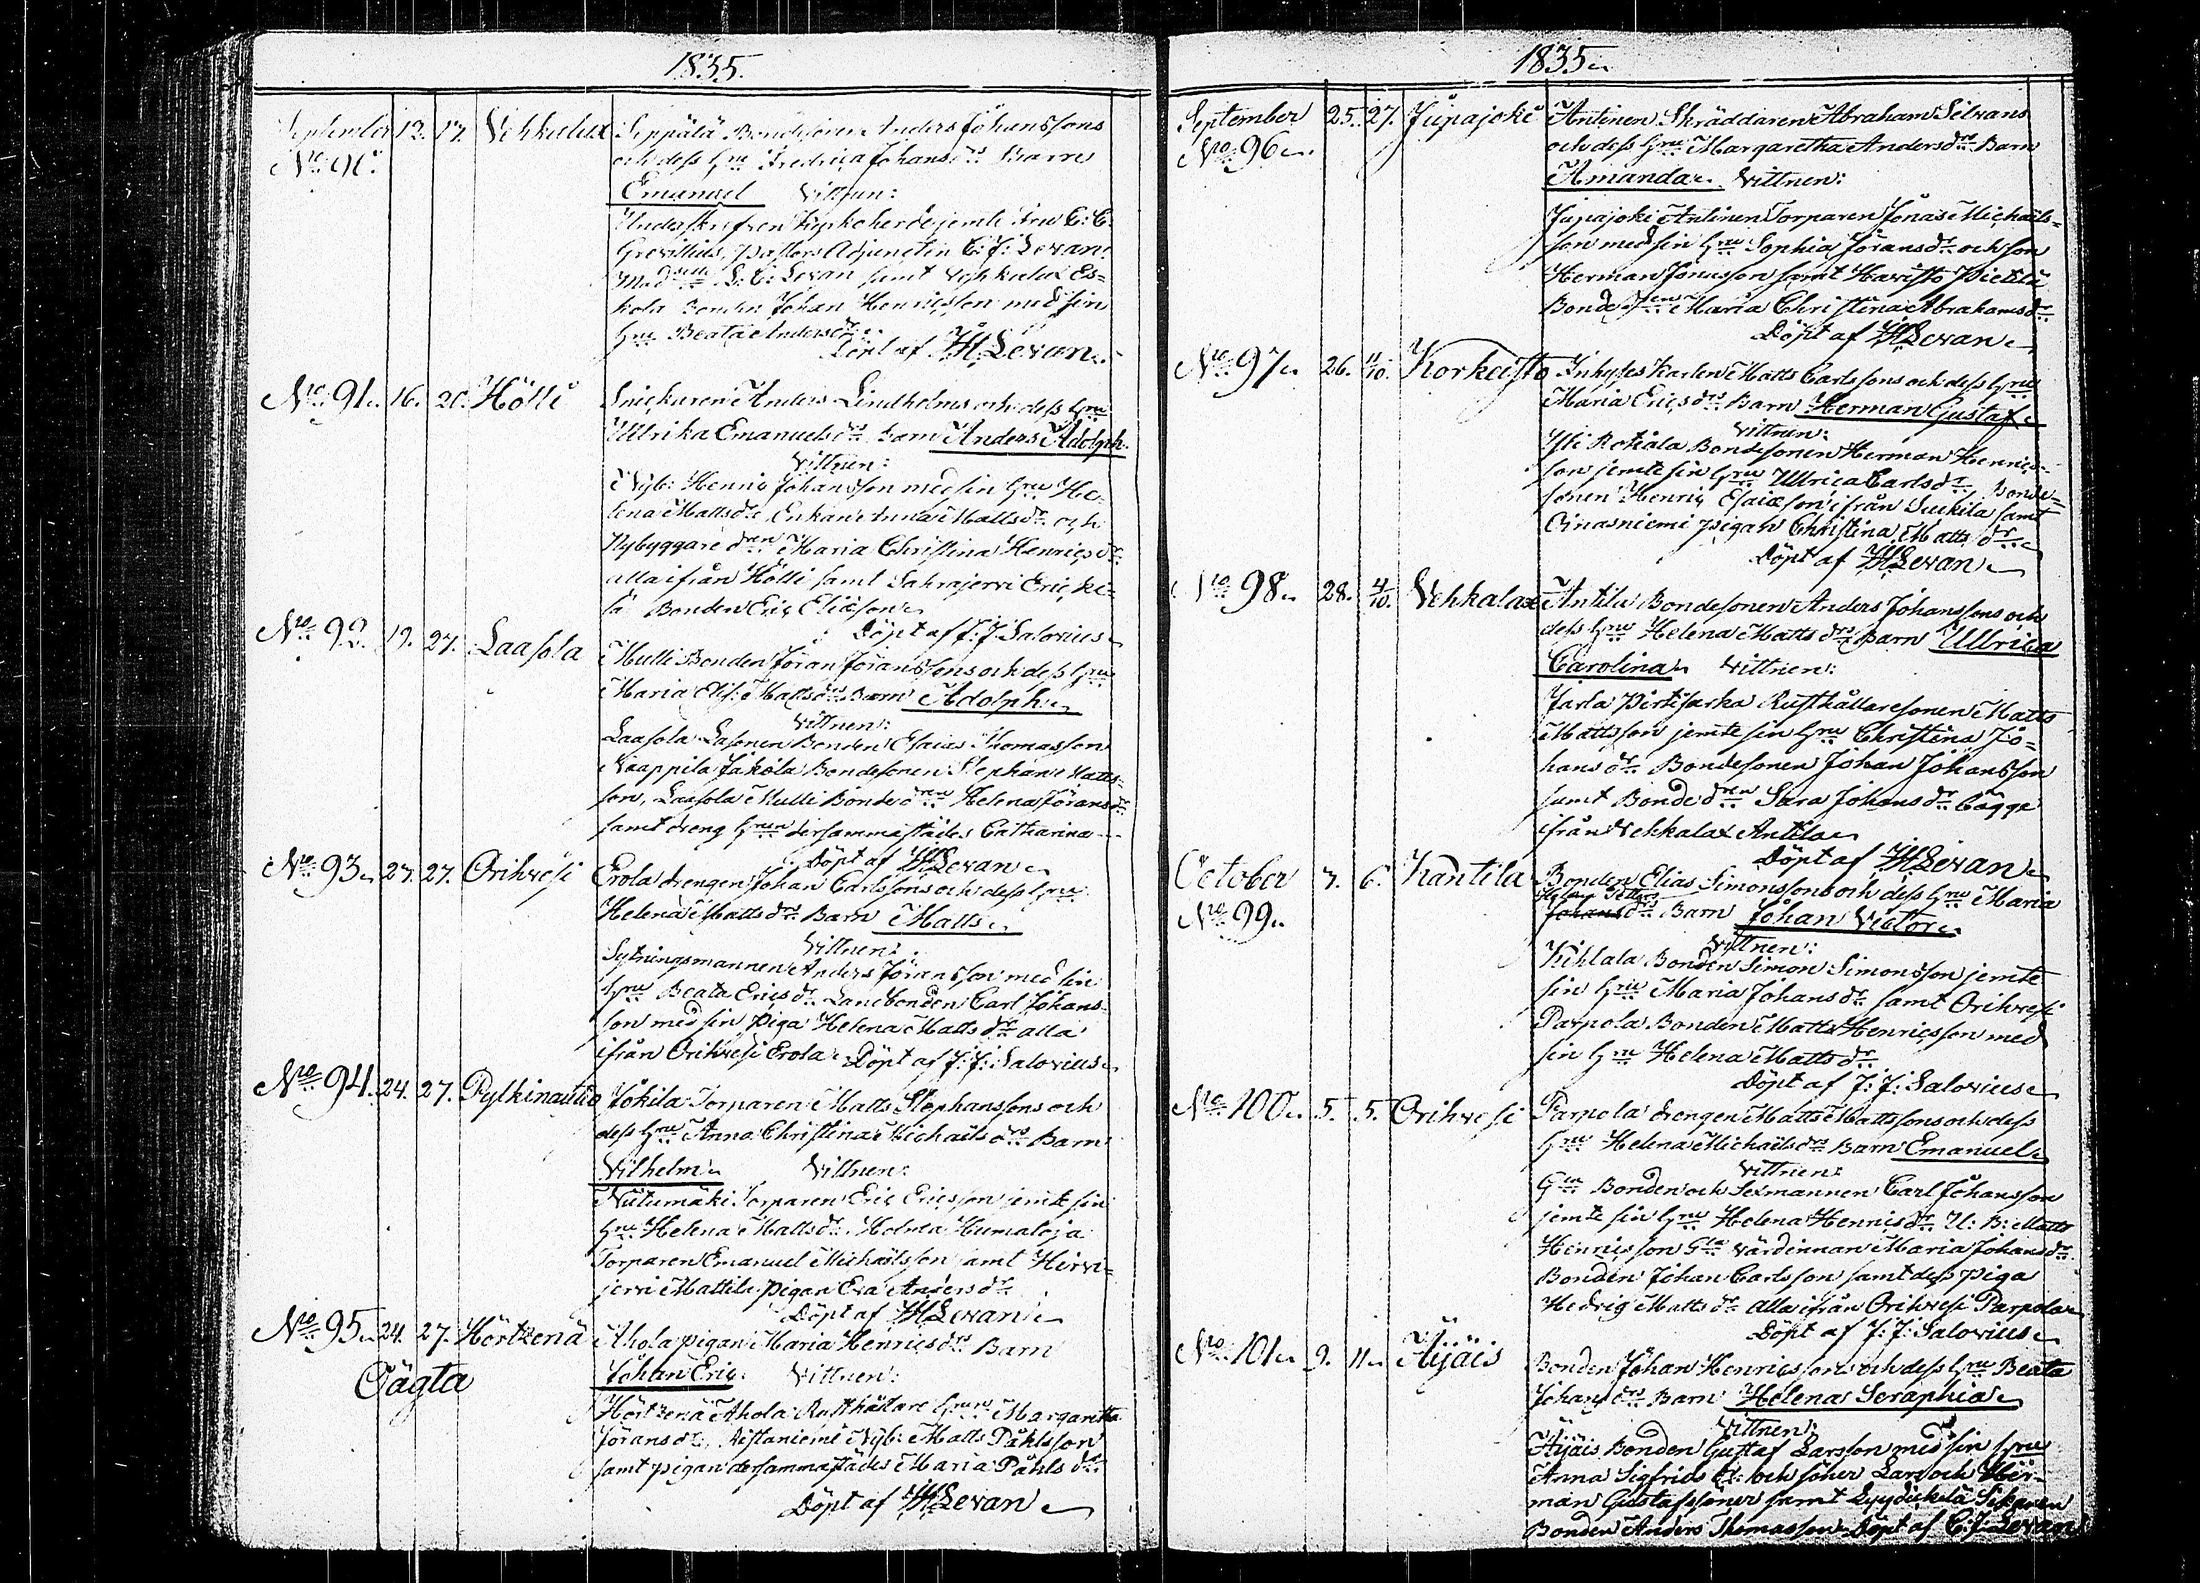 1835.
September 12. 17. Vehkalax Seppälä Bondesonen Anders Johanssons
No 90. och dess Hru Fredrica Johansdrs Barn
Emanuel Vittnen:
Underskrifven Kyrkoherde jemte Fru C: C:
Grevillius, Pastors Adjuncten C: J: Levan
L: C: Levan samt Vehkalax Es=
kola Bonden Johan Henricsson med sin
Hru Beata Andersdr
Döpt af Levan
No 91. 16. 20. Hölli Snickaren Anders Lindholms och dess Hru
Ullrika Emanuelsdrs barn Anders Adolph.
Vittnen:
Nyb: Henric Johansson med sin Hru He=
lena Mattsdr, Enkan Anna Mattsdr och
Nybyggare dren Maria Christina Henricsdr
alla ifrån Hölli samt Sahrajervi Erick=
lä Bonden Eric Eliæson
Döpt af J: J: Salovius
No 92. 19. 27. Laasola Mulli Bonden Jöran Jöranssons och dess Hru
Maria Elis: Mattsdrs Barn Adolph
Vittnen:
Laasola Lasonen Bonden Esaias Thomasson
Naappila Jakola Bondesonen Stephan Matts=
son, Laasola Mulli Bonde dren Helena Jöransdr
samt dreng Hrun dersammastädes Catharina
Döpt af Levan
No 93 27. 27. Orihvesi Erola drengen Johan Carlssons och dess Hru
Helena Mattsdrs Barn Matts
Vittnen:
Sytningsmannen Anders Jöransson med sin
Hru Beata Ericsdr Landbonden Carl Johans=
son med sin piga Helena Mattsdr alla
ifrån Orihvesi Erola Döpt af J: J: Salovius
No 94. 24. 27. Pylkinautio Jokila Torparen Matts Stephanssons och
dess Hru Anna Christina Michaelsdrs Barn
Vilhelm Vittnen:
Niitumäki Torparen Eric Ericsson jemte sin
Hru Helena Mattsdr Holma Humaloja
Torparen Emanuel Michaelsson samt Hirvi=
jervi Mattila pigan Eva Andersdr
Döpt af Levan
No 95 24. 27. Hörtzenä Ahola pigan Maria Henricsdrs Barn
Oägta Johan Eric. Vittnen:
Hörtzenä Ahola Rusthållare Hrun Margareta
Jöransdr, Aistaniemi Nyb: Matts Påhlsson
samt pigan dersammastädes Maria Påhlsdr
Döpt af Levan
1835
September 25. 27. Jupajoki Antinen Skräddaren Abraham Silvans
No 96 och dess Hru Margaretha Andersdrs Barn
Amanda Vittnen:
Jupajoki Antinen Torparen Jonas Michaels=
son med sin Hru Sophia Jöransdr och son
Herman Jonasson samt Havisto Pietilä
Bonde dren Maria Christina Abrahamsdr
Döpt af Levan
No 97 26. 4/10. Korkeisto Inhyses Karlen Matts Carlssons och dess Hru
Maria Ericsdrs Barn Herman Gustaf
Vittnen:
Yli Rotiala Bondesonen Herman Henrics=
son jemte sin Hru Ullrica Carlsdr, Bonde=
sonen Henric Esaiæson ifrån Suikila samt
Oinasniemi pigan Christina Matts dr
Döpt af Levan
No 98 28. 4/10. Vehkalax Antila Bondesonen Anders Johanssons och
dess Hru Helena Mattsdrs Barn Ullrica
Carolina Vittnen:
Jarla Pirtisarka Rusthållaresonen Matts
Mattsson jemte sin Hru Christina Jo=
hansdr Bondesonen Johan Johansson
samt Bonde dren Sara Johansdr Cagge
ifrån Vehkalax Antila
Döpt af Levan
October 3. 6. Kantila Bonden Elias Simonssons och dess Hru Maria
No 99 Johansdrs Barn Johan Victor
Vittnen:
Kihlala Bonden Simon Simonsson jemte
sin Hru Maria Johansdr samt Orihvesi
Parpola Bonden Matts Henricsson med
sin Hru Helena Mattsdr
Döpt af J: J: Salovius
No 100 5. 5. Orihvesi Parpola drengen Matts Mattssons och dess
Hru Helena Michaelsdrs Barn Emanuel
Vittnen:
Gla Bonden och Sexmannen Carl Johansson
jemte sin Hru Helena Henricsdr U: B: Matts
Henricsson Gla värdinnan Maria Johansdr
Bonden Johan Carlsson samt dess piga
Hedvig Mattsdr alla ifrån Orihvesi Parpola
Döpt af J: J: Salovius
No 101 9. 11. Äijäis Bonden Johan Henricssons och dess Hru Beata
Johansdrs Barn Helena Seraphia
Vittnen:
Äijäis Bonden Gustaf Larsson med sin Hru
Anna Sigfridsdr och söner Lars och Her=
man Gustafssöner samt Lyydickälä
Bonden Anders Thomasson Döpt af C: J: Levan